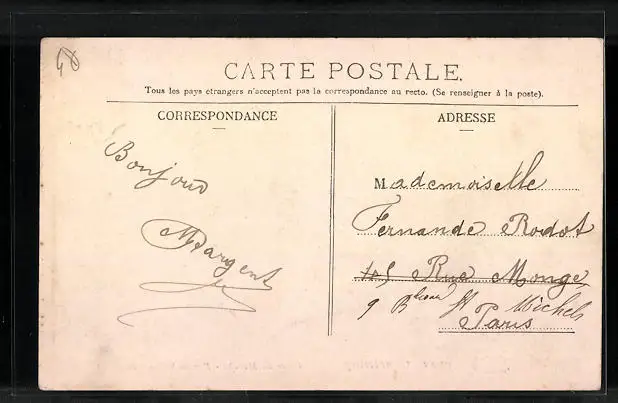 CARTE POSTALE.
Tous les pays étrangers n'acceptent pas la correspondance au recto. (Se renseigner à la poste).
CORRESPONDANCE
Bonjour
Margent
ADRESSE
Mademoiselle
Fernande Rodot
Rue Monge
9 St Michel
Paris